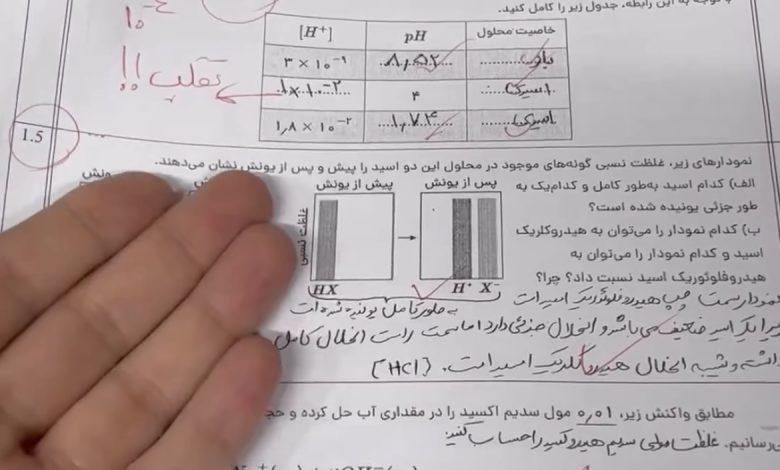 با توجه به این رابطه، جدول زیر را کامل کنید.
خاصیت محلول pH [H⁺]
بازی ۸,۵۲ ۳ × ۱۰⁻⁹
اسیدی ۴ ۱×۱۰⁻²
اسیدی ۱,۷۴ ۱٫۸ × ۱۰⁻²
۱۰⁻⁴
تقلب!!
1.5
نمودارهای زیر، غلظت نسبی گونه‌های موجود در محلول این دو اسید را پیش و پس از یونش نشان می‌دهند.
الف) کدام اسید به‌طور کامل و کدام‌یک به
طور جزئی یونیده شده است؟
ب) کدام نمودار را می‌توان به هیدروکلریک
اسید و کدام نمودار را می‌توان به
هیدروفلوئوریک اسید نسبت داد؟ چرا؟
پس از یونش
پیش از یونش
یونش
غلظت نسبی
HX
H⁺ X⁻
به طور کامل یونیده شده است
نمودار سمت چپ هیدروفلوئوریک اسید است
زیرا یک اسید ضعیف می باشد و انحلال جزئی دارد اما سمت راست انحلال کامل
داشته و شبیه انحلال هیدروکلریک اسید است. [HCl]
مطابق واکنش زیر، ۰٫۰۱ مول سدیم اکسید را در مقداری آب حل کرده و حج
می‌رسانیم. غلظت مولی سدیم هیدروکسید را حساب کنید.